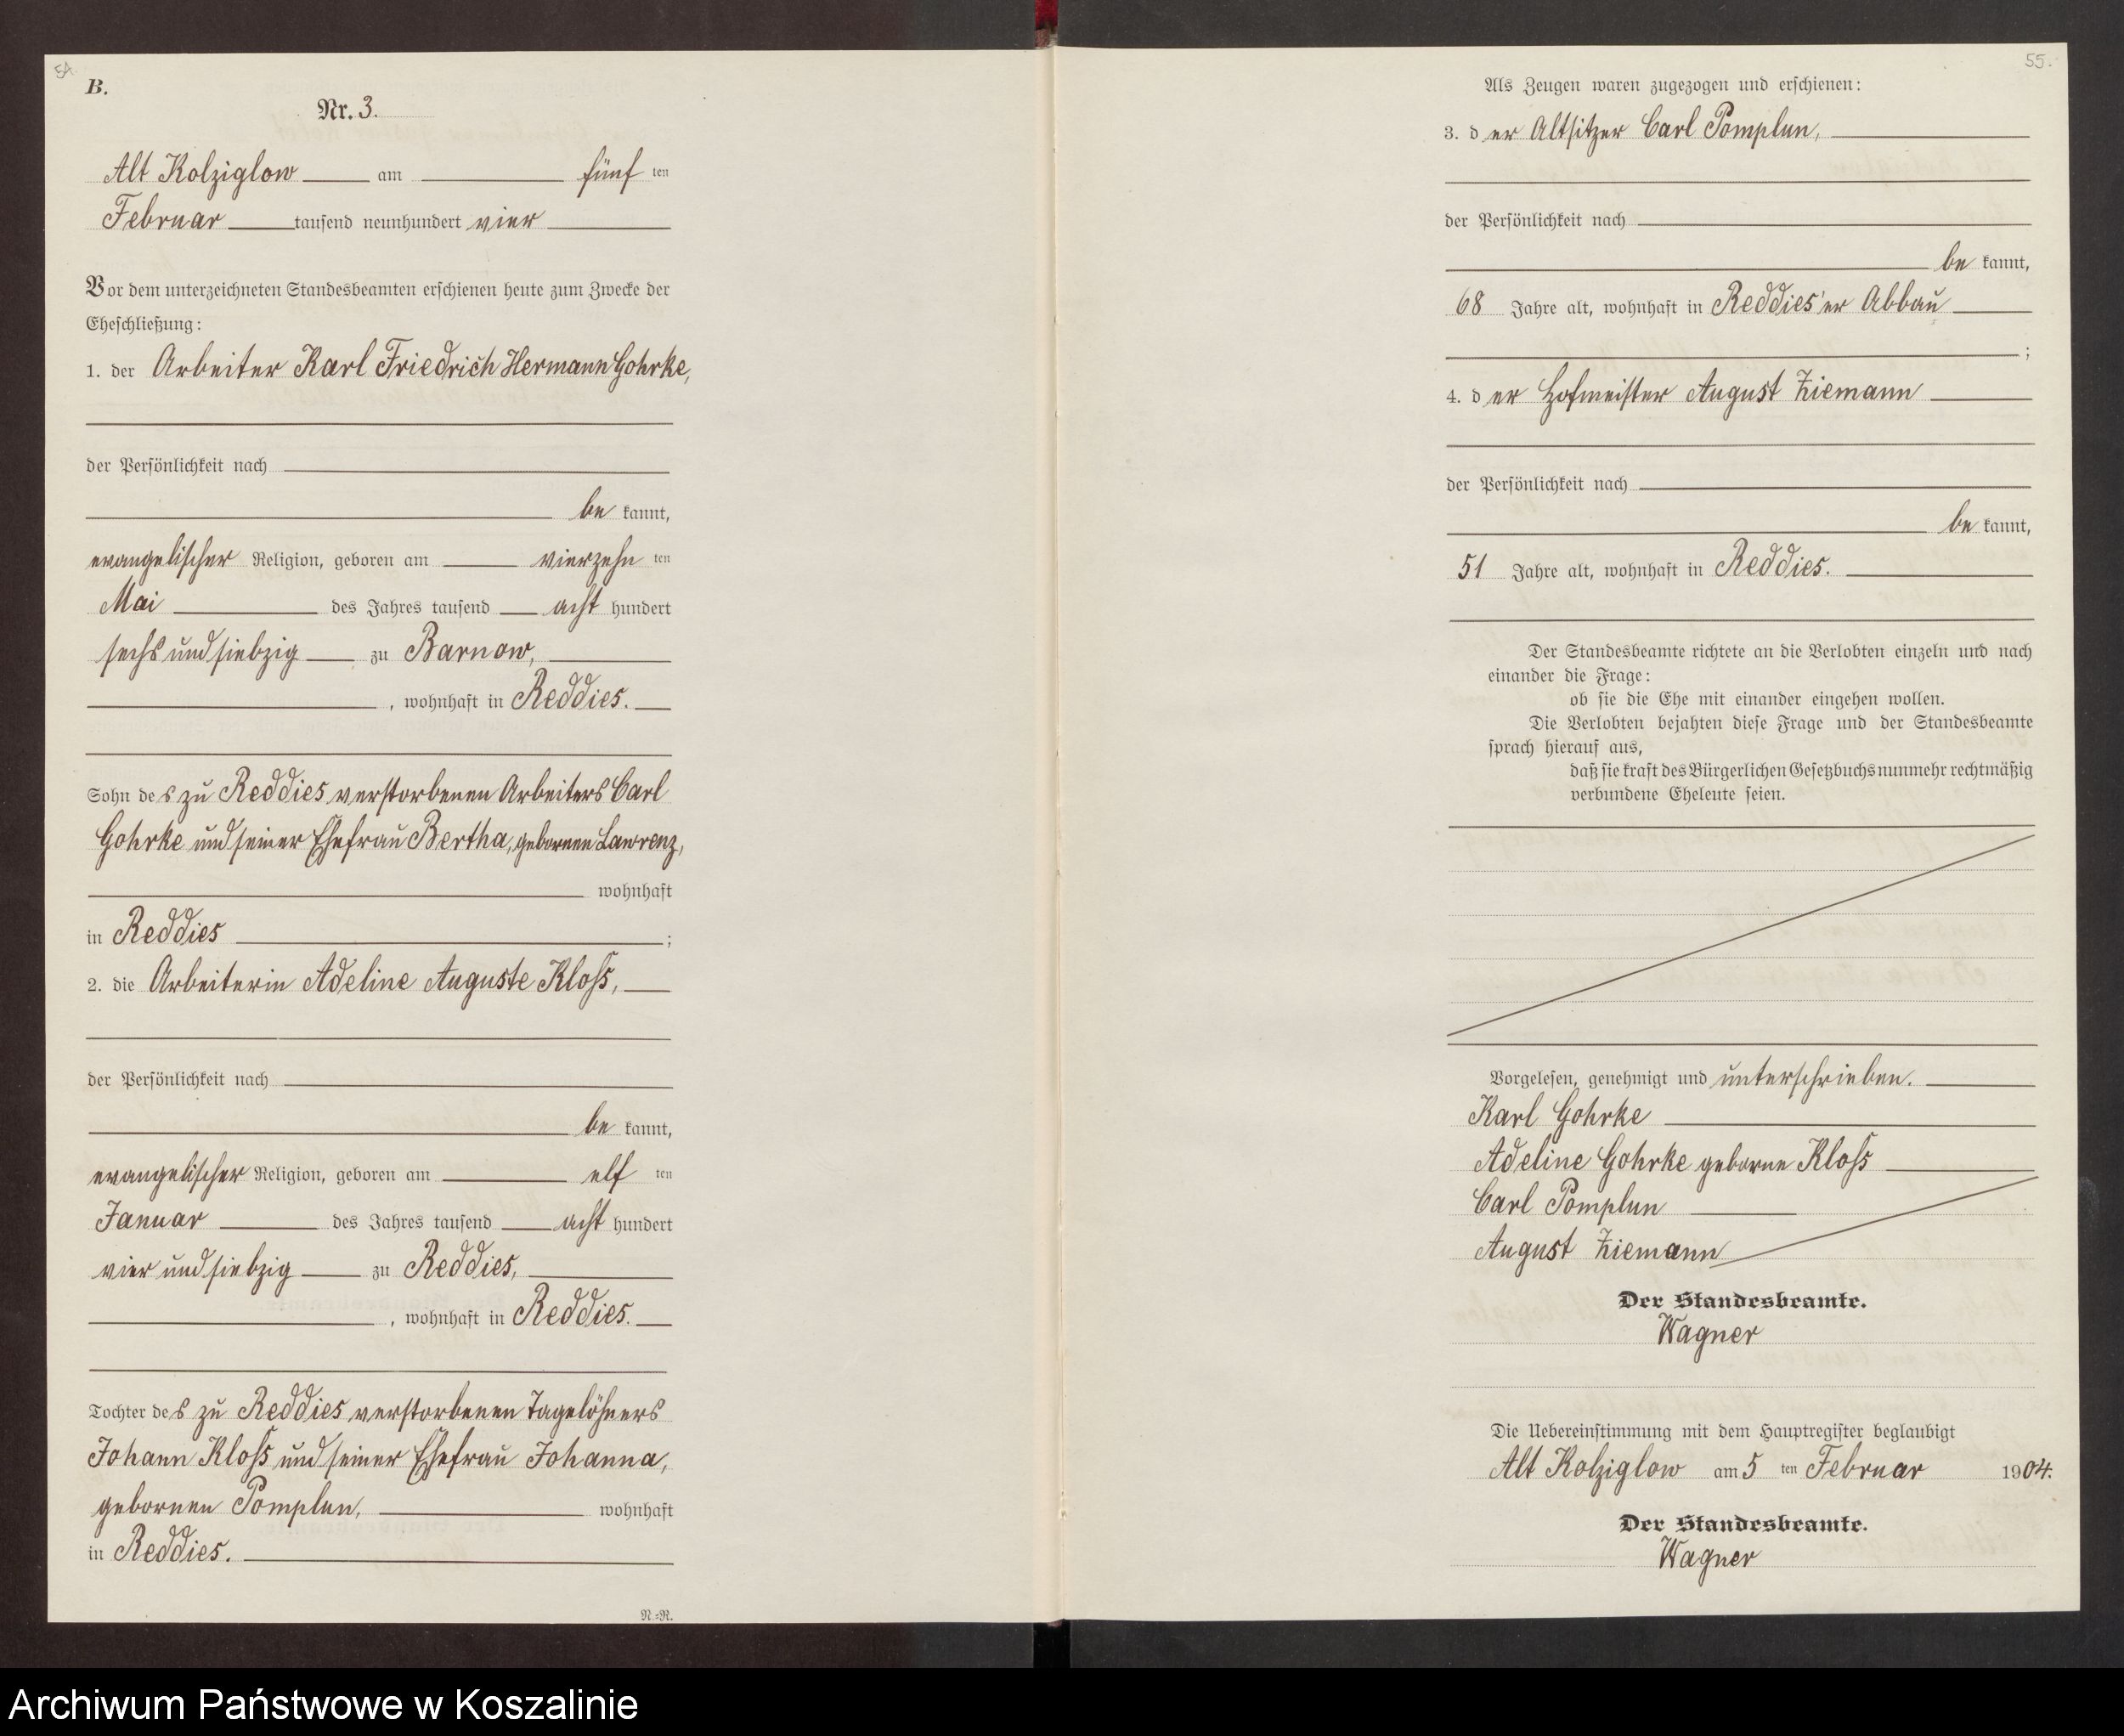 54
B.
Nr. 3.
Alt Kolziglow am fünf ten
Februar tausend neunhundert vier
Vor dem unterzeichneten Standesbeamten erschienen heute zum Zwecke der
Eheschließung:
1. der Arbeiter Karl Friedrich Hermann Gohrke,
der Persönlichkeit nach
be kannt,
evangelischer Religion, geboren am vierzehn ten
Mai des Jahres tausend acht hundert
sechs und siebzig zu Barnow,
, wohnhaft in Reddies.
Sohn des zu Reddies verstorbenen Arbeiters Carl
Gohrke und seiner Ehefrau Bertha, gebornen Lawrenz,
wohnhaft
in Reddies ;
2. die Arbeiterin Adeline Auguste Kloss,
der Persönlichkeit nach
be kannt,
evangelischer Religion, geboren am elf ten
Januar des Jahres tausend acht hundert
vier und siebzig zu Reddies,
, wohnhaft in Reddies.
Tochter des zu Reddies verstorbenen Tagelöhners
Johann Kloss und seiner Ehefrau Johanna,
gebornen Pomplun, wohnhaft
in Reddies.
N.-N.
55.
Als Zeugen waren zugezogen und erschienen:
3. der Altsitzer Carl Pomplun,
der Persönlichkeit nach
be kannt,
68 Jahre alt, wohnhaft in Reddies'er Abbau
;
4. der Hofmeister August Ziemann
der Persönlichkeit nach
be kannt,
51 Jahre alt, wohnhaft in Reddies.
Der Standesbeamte richtete an die Verlobten einzeln und nach
einander die Frage:
ob sie die Ehe mit einander eingehen wollen.
Die Verlobten bejahten diese Frage und der Standesbeamte
sprach hierauf aus,
daß sie kraft des Bürgerlichen Gesetzbuchs nunmehr rechtmäßig
verbundene Eheleute seien.
Vorgelesen, genehmigt und unterschrieben.
Karl Gohrke
Adeline Gohrke geborne Kloss
Carl Pomplun
August Ziemann
Der Standesbeamte.
Wagner
Die Uebereinstimmung mit dem Hauptregister beglaubigt
Alt Kolziglow am 5 ten Februar 1904.
Der Standesbeamte.
Wagner
Archiwum Państwowe w Koszalinie